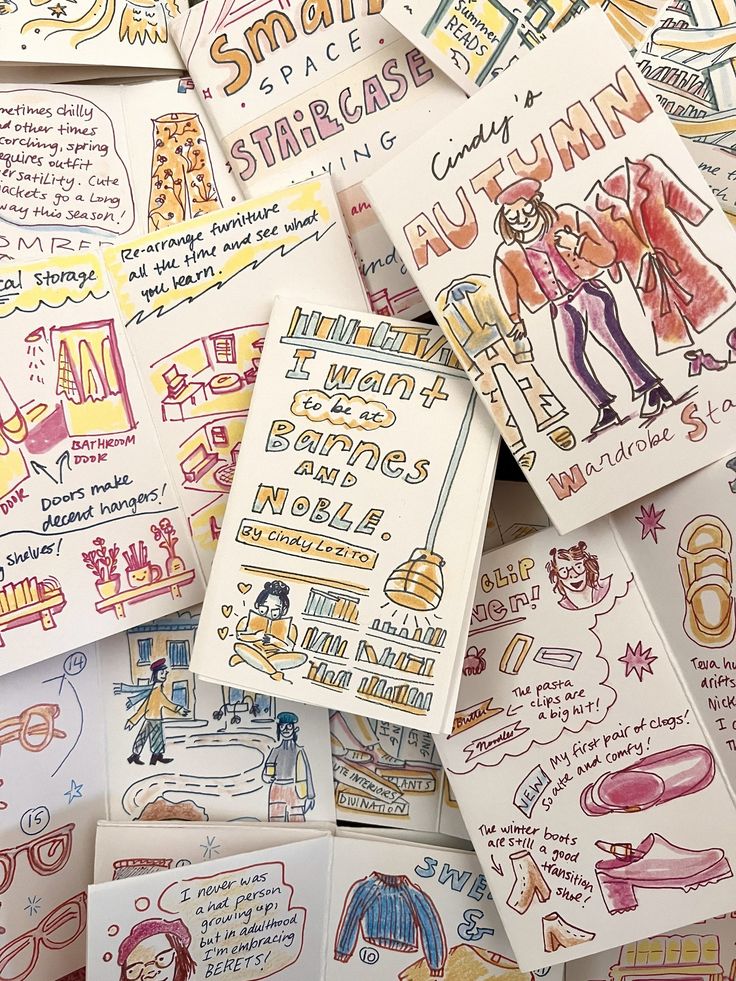 Summer
READS
Small
SPACE
STAIRCASE
LIVING
Cindy's
AUTUMN
Wardrobe Sta
metimes chilly
nd other times
corching, spring
equires outfit
ersatility. Cute
ackets go a Long
way this season!
cal Storage
Re-arrange furniture
all the time and see what
you learn.
BATHROOM
DOOR
DOOR
Doors make
decent hangers!
shelves!
I want
to be at
Barnes
AND
NOBLE.
By Cindy Lozito
CLIP
The pasta
clips are
a big hit!
Butter
Noodles
My first pair of Clogs!
So cute and comfy!
NEW!
The winter boots
are still a good
transition
shoe!
Teva hu
drifts
Nick
I c
14
15
UTE INTERIORS
PLANTS
DIVINATION
I never was
a hat person
growing up,
but in adulthood
I'm embracing
BERETS!
SWE
&
10